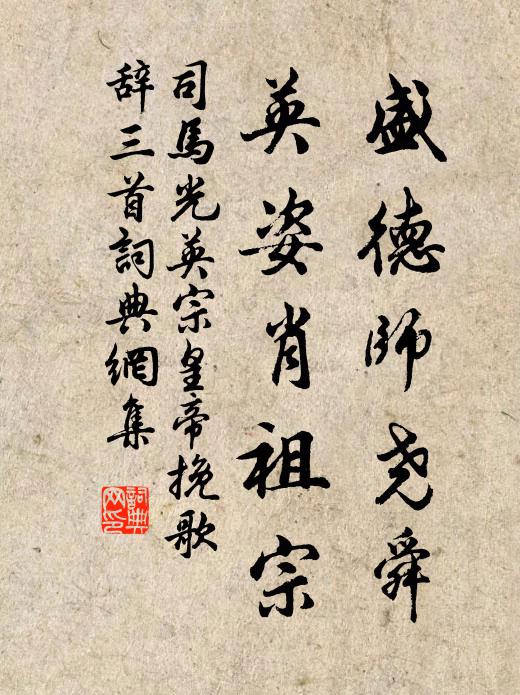 盛德師尧舜
英姿肖祖宗
司馬光英宗皇帝挽歌
辞三首詞典網集
詞典
网印